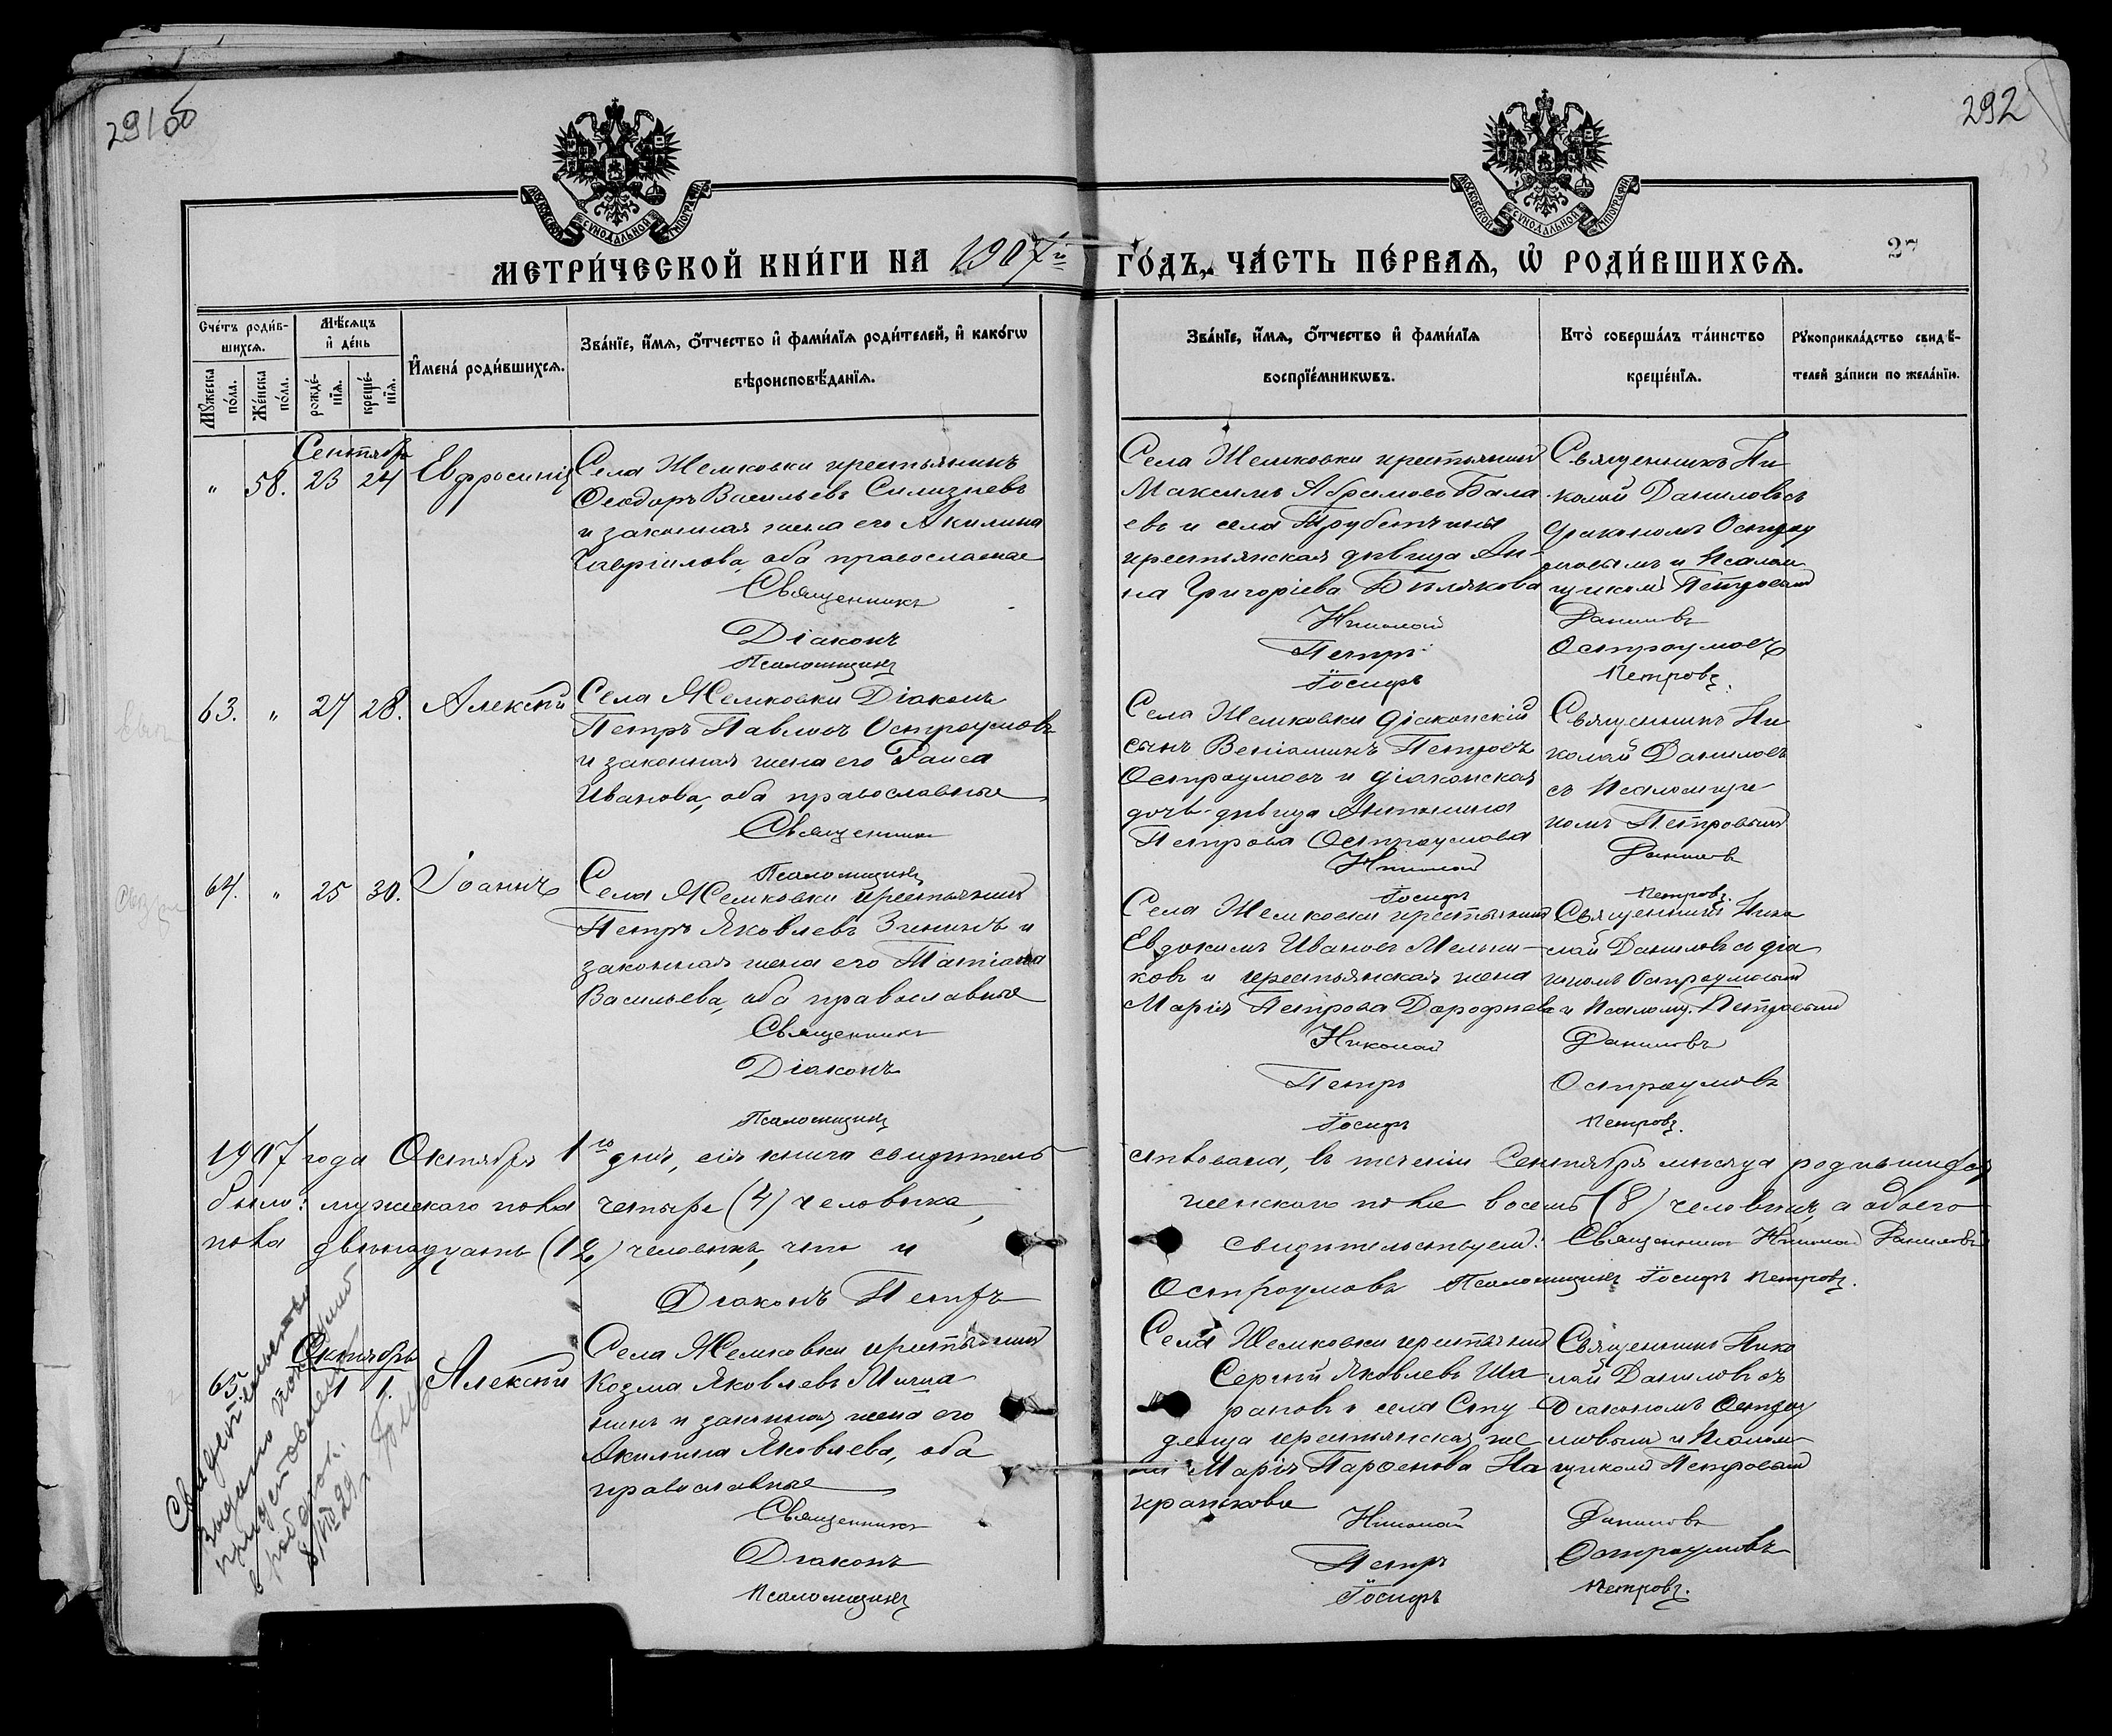 291об
292
МОСКОВСКОЙ СѴНОДАЛЬНОЙ ТИПОГРАФІИ
МОСКОВСКОЙ СѴНОДАЛЬНОЙ ТИПОГРАФІИ
МЕТРИ́ЧЕСКОЙ КНИ́ГИ НА 1907й ГО́ДЪ, ЧА́СТЬ ПЕ́РВАЯ, Ѡ҆ РОДИ́ВШИХСЯ.
27
Сче́тъ роди́в-
шихся.
Мѣ́сяцъ
и҆ де́нь
И҆мена́ роди́вшихся.
Зва́нїе, и҆́мя, ѻ҆́тчество и҆ фами́лїя роди́телей, и҆ како́гѡ
вѣроисповѣ́данїя.
Мꙋ́жеска
по́ла.
Же́нска
по́ла.
рожде́-
нїя.
креще́-
нїя.
Зва́нїе, и҆́мя, ѻ҆́тчество и҆ фами́лїя
воспрїе́мникѡвъ.
Кто̀ соверша́лъ та́инство
креще́нїя.
Рꙋкоприкла́дство свидѣ́-
телей за́писи по жела́нїю.
Сентябрь
" 58. 23 24 Евфросинія
Села Жемковки крестьянинъ
Ѳеодоръ Васильевъ Силизневъ
и законная жена его Акилина
Гавріилова, оба православные
Священникъ
Діаконъ
Псаломщикъ
Села Жемковки крестьянинъ
Максимъ Абрамовъ Бала
евъ и села Трубетчины
крестьянская дѣвица Ан-
на Григоріева Бѣлякова
Николай
Петръ
Іосифъ
Священникъ Ни
колай Даниловъ съ
діакономъ Остроу
мовымъ и Псалом
щикомъ Петровымъ
Даниловъ
Остроумовъ
Петровъ.
63. " 27 28. Алексѣй
Села Жемковки Діаконъ
Петръ Павловъ Остроумовъ
и законная жена его Раиса
Иванова, оба православные
Священникъ
Псаломщикъ
Села Жемковки діаконскій
сынъ Веніаминъ Петровъ
Остроумовъ и діаконская
дочь-дѣвица Антонина
Петрова Остроумова
Николай
Іосифъ
Священникъ Ни
колай Даниловъ
съ Псаломщи
комъ Петровымъ
Даниловъ
Петровъ.
64. " 25 30. Іоаннъ
Села Жемковки крестьянинъ
Петръ Яковлевъ Зининъ и
законная жена его Татіана
Васильева, оба православные
Священникъ
Діаконъ
Псаломщикъ
Села Жемковки крестьянинъ
Евдокимъ Ивановъ Мельни-
ковъ и крестьянская жена
Марія Петрова Дорофѣева
Николай
Петръ
Іосифъ
Священникъ Нико
лай Даниловъ съ діа
кономъ Остроумовымъ
и Псаломщ. Петровымъ
Даниловъ
Остроумовъ
Петровъ.
1907 года Октября 1го дня, сія книга свидѣтель
ствована, въ теченіи Сентября мѣсяца родившихся
было: мужескаго пола четыре (4) человѣка,
женскаго пола восемь (8) человѣкъ, а обоего
пола двѣнадцать (12) человѣкъ, что и
свидѣтельствуемъ: Священникъ Николай Даниловъ
Діаконъ Петръ
Остроумовъ Псаломщикъ Іосифъ Петровъ.
Октябрь
65. 1 1. Алексѣй
Села Жемковки крестьянинъ
Козма Яковлевъ Мича
нинъ и законная жена его
Акилина Яковлева, оба
православные
Священникъ
Діаконъ
Псаломщикъ
Села Жемковки крестьянинъ
Сергій Яковлевъ Ша
раповъ и села Сту
денца крестьянская же
на Марія Парѳенова
Николай
Петръ
Іосифъ
Священникъ Нико
лай Даниловъ съ
Діакономъ Остроу
мовымъ и Псалом-
щикомъ Петровымъ
Даниловъ
Остроумовъ
Петровъ.
Свидетельство
выдано